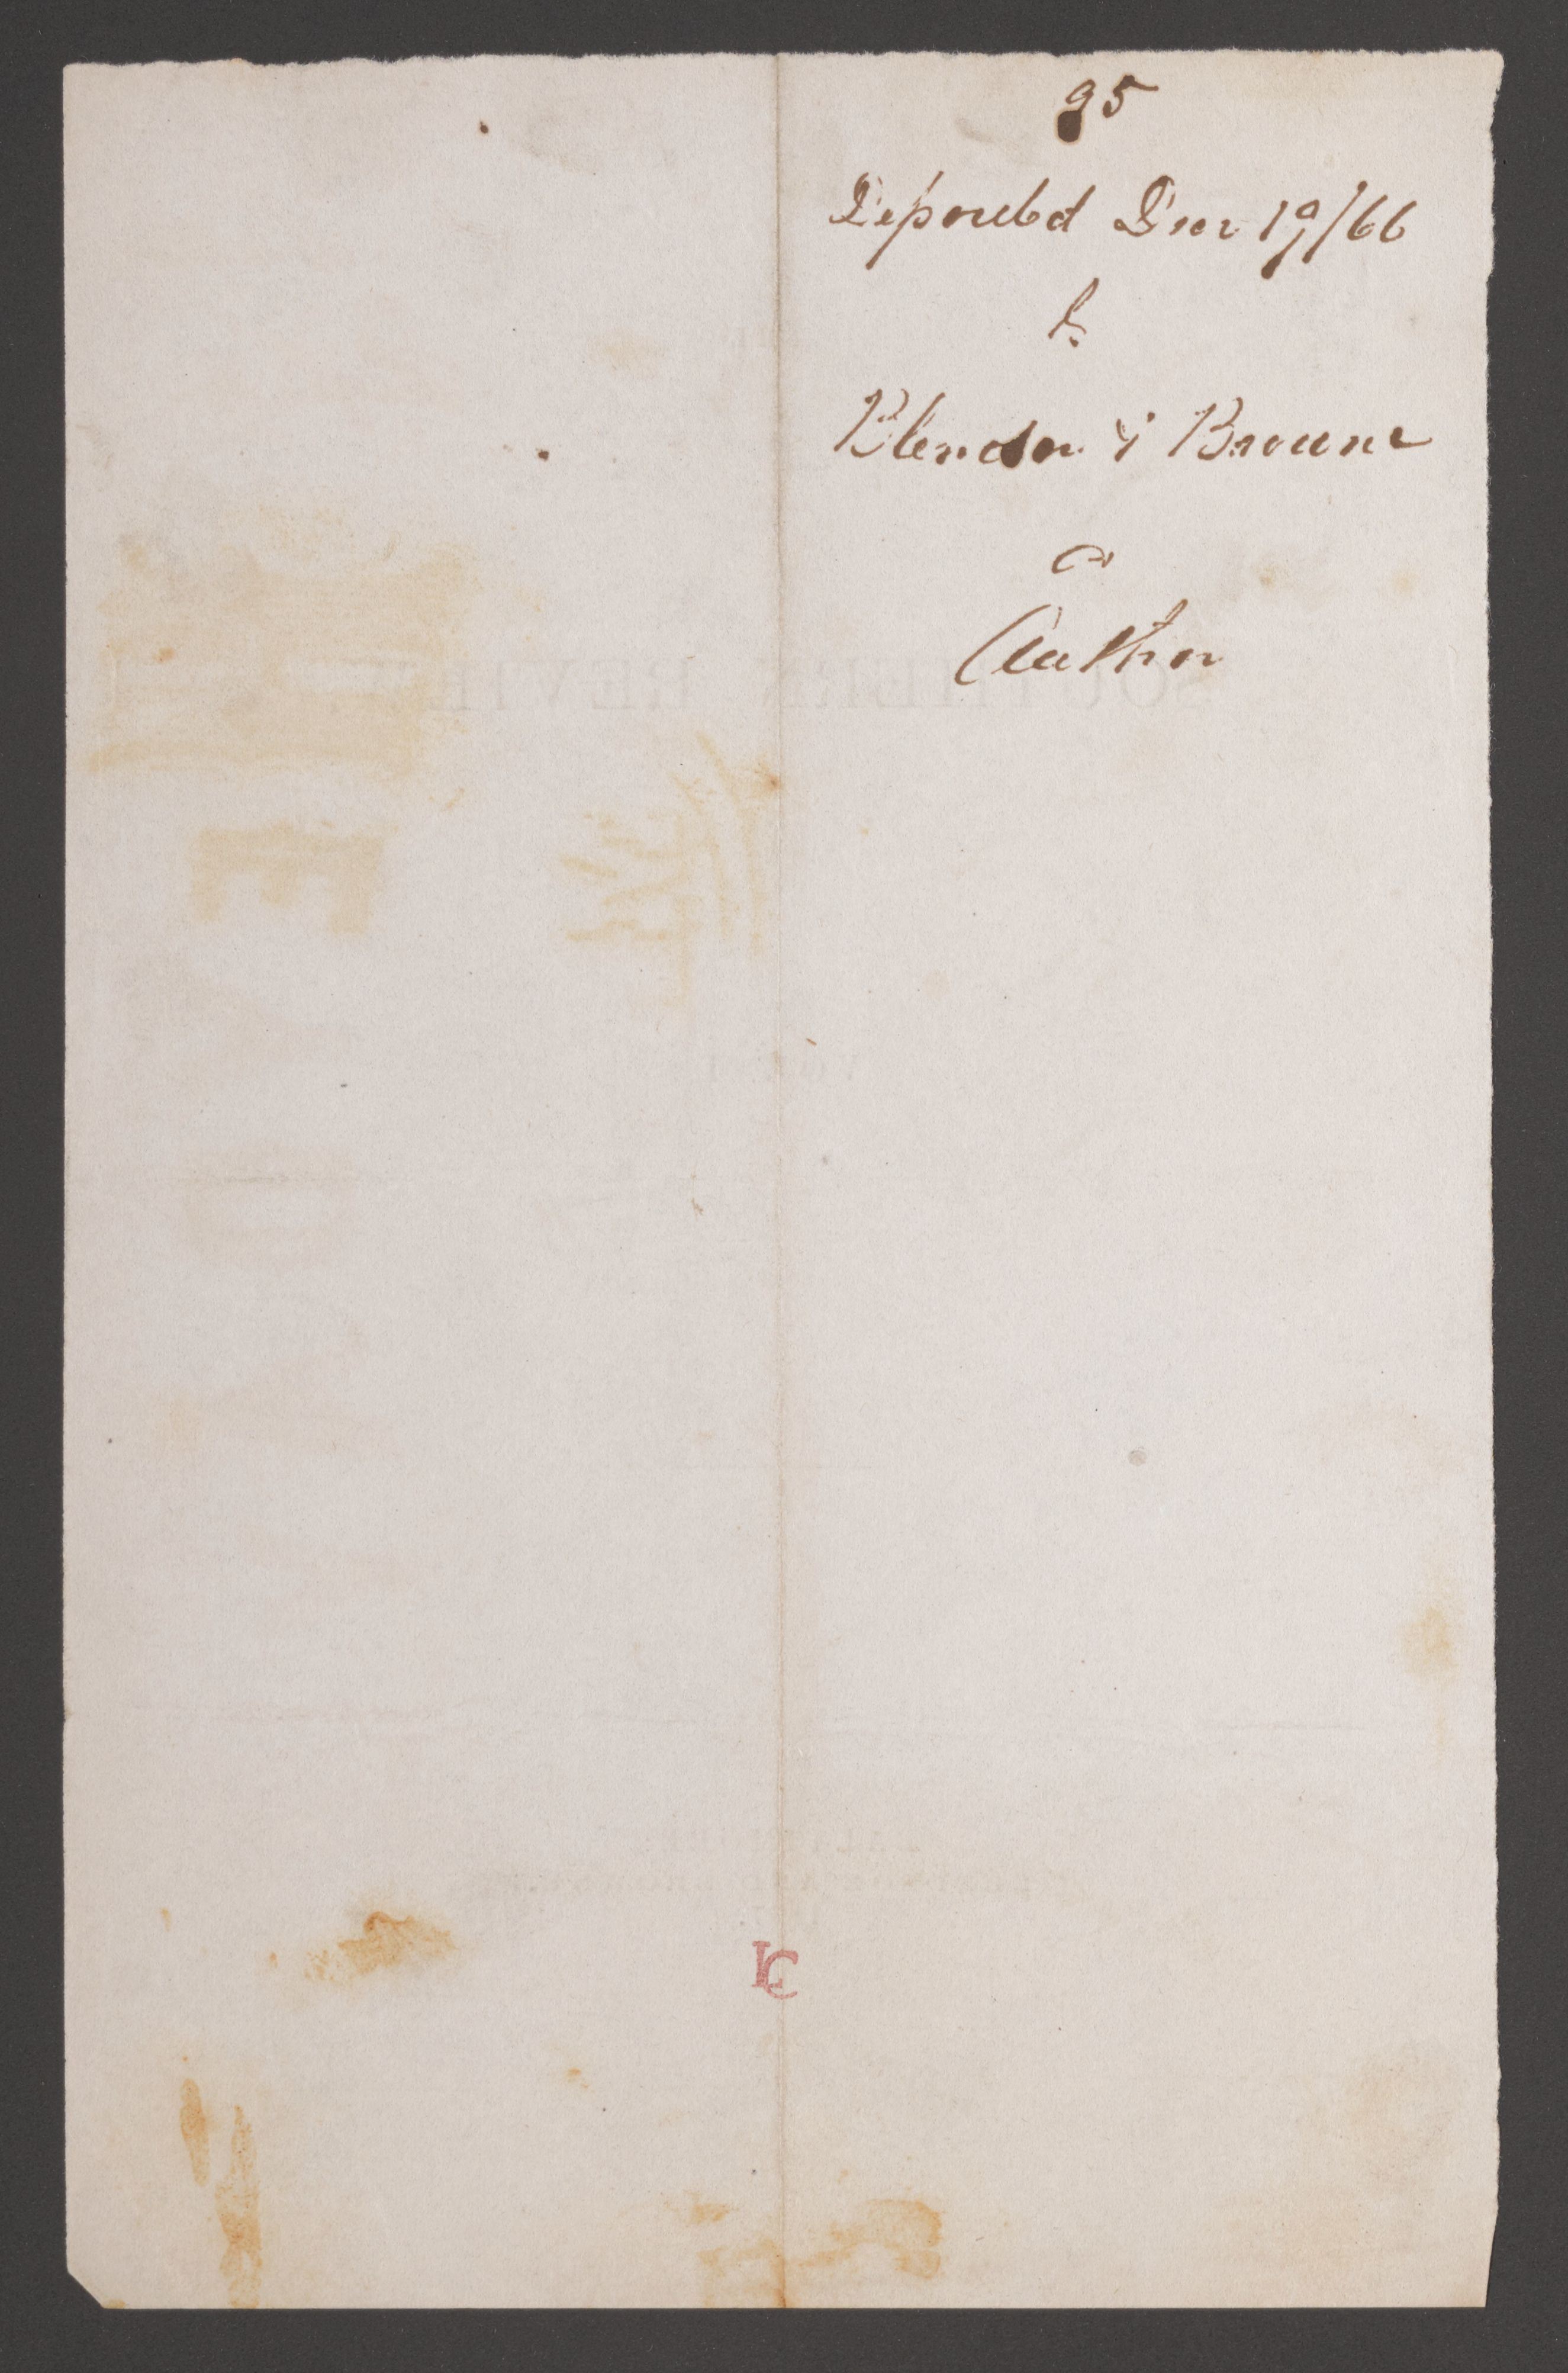 95
Deposited Decr 19/66
by
Bledsoe & Browne
as
Author
LC